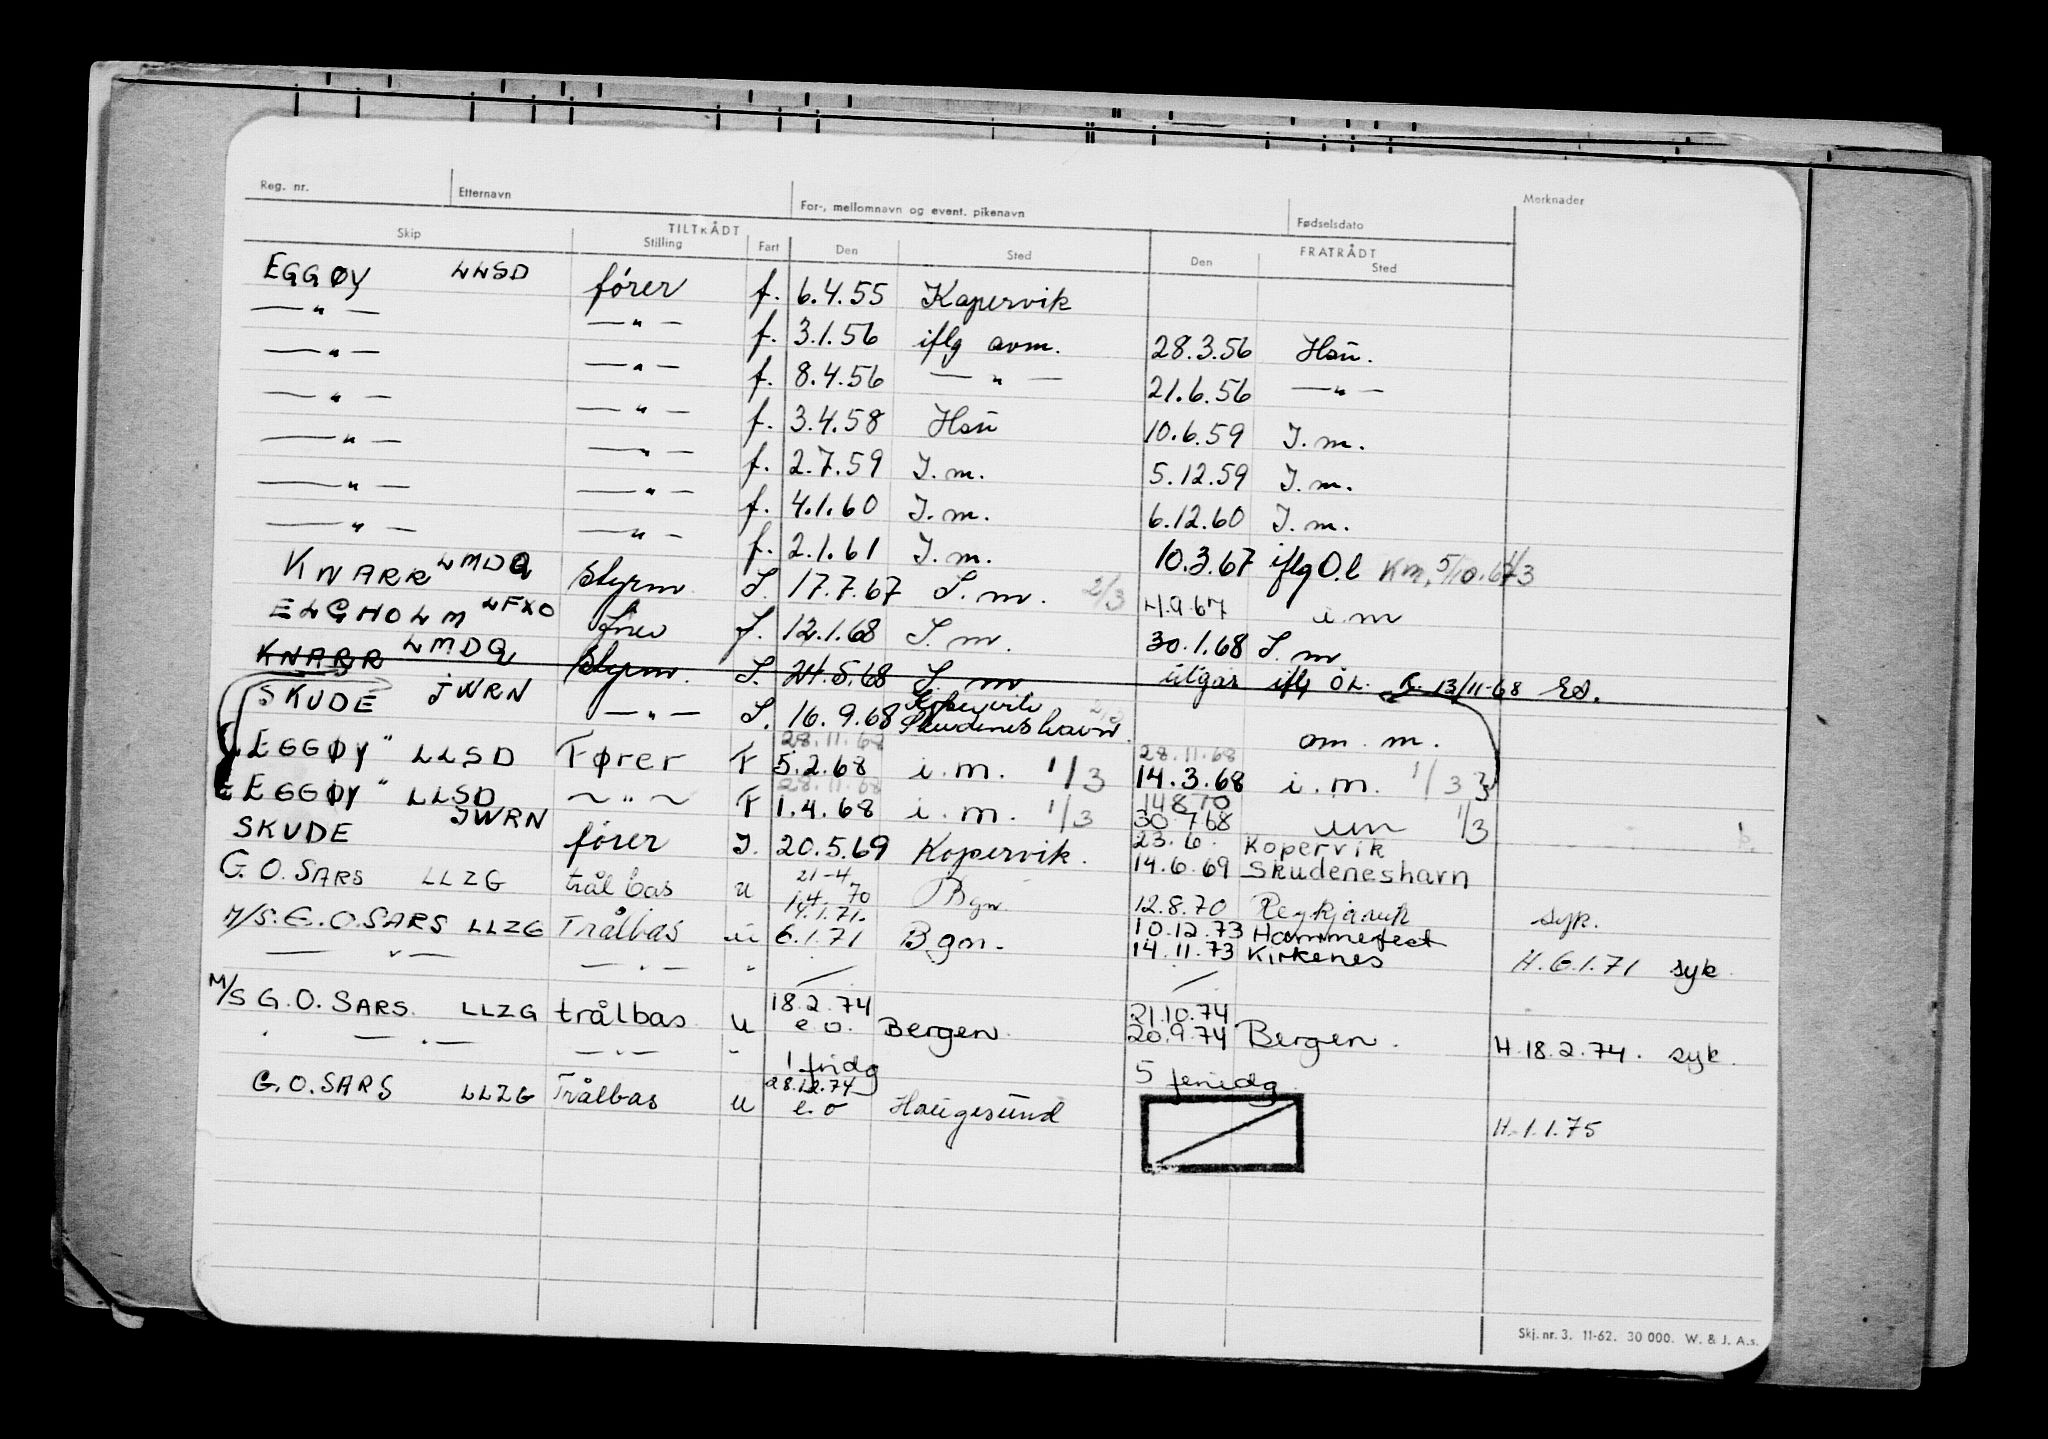 Reg. nr. Etternavn For-, mellomnavn og event. pikenavn Fødselsdato Merknader
TILTRÅDT FRATRÅDT
Skip Stilling Fart Den Sted Den Sted
EGGØY LLSD fører f. 6.4.55 Kopervik
—"— —"— f. 3.1.56 iflg avm. 28.3.56 Hau.
—"— —"— f. 8.4.56 —"— 21.6.56 —"—
—"— —"— f. 3.4.58 Hau 10.6.59 I.m.
—"— —"— f. 2.7.59 I.m. 5.12.59 I.m.
—"— —"— f. 4.1.60 I.m. 6.12.60 I.m.
—"— —"— f. 2.1.61 I.m. 10.3.67 iflg O.l Km. 5/10.67
KNARR LMDQ Styrm I. 17.7.67 I.m. 2/3 4.9.67 i.m
ELGHOLM LFXO fører f. 12.1.68 I.m. 30.1.68 I.m
KNARR LMDQ Styrm. I. 24.5.68 I.m utgår iflg ÖL. 13/11-68
SKUDE JWRN —"— I. 16.9.68 Kopervik Skudeneshavn om. m.
28.11.68 28.11.68
"EGGØY" LLSD Fører F 5.2.68 i.m. 1/3 14.3.68 i.m. 1/3
28.11.68 14.8.70
"EGGØY" LLSD ~"~ F 1.4.68 i.m. 1/3 30.7.68 i.m 1/3
23.6. Kopervik
SKUDE JWRN fører I. 20.5.69 Kopervik. 14.6.69 Skudeneshavn
21-4
G.O. SARS LLZG trål bas u 14.70 Bgn 12.8.70 Reykjavik syk.
14.1.71. 10.12.73 Hammerfest
M/S. G.O. SARS LLZG Trålbas u 6.1.71 Bgn. 14.11.73 Kirkenes H. 6.1.71 syk.
—"— —"— " / /
18.2.74 21.10.74
M/S G.O. SARS. LLZG trålbas u e.o. Bergen 20.9.74 Bergen. H. 18.2.74. syk.
—"— —"— " 1 fridg 5 feridg
28.12.74
G.O. SARS LLZG Trålbas u e.o Haugesund H. 1.1.75
Skj. nr. 3. 11-62. 30 000. W. & J. A.s.